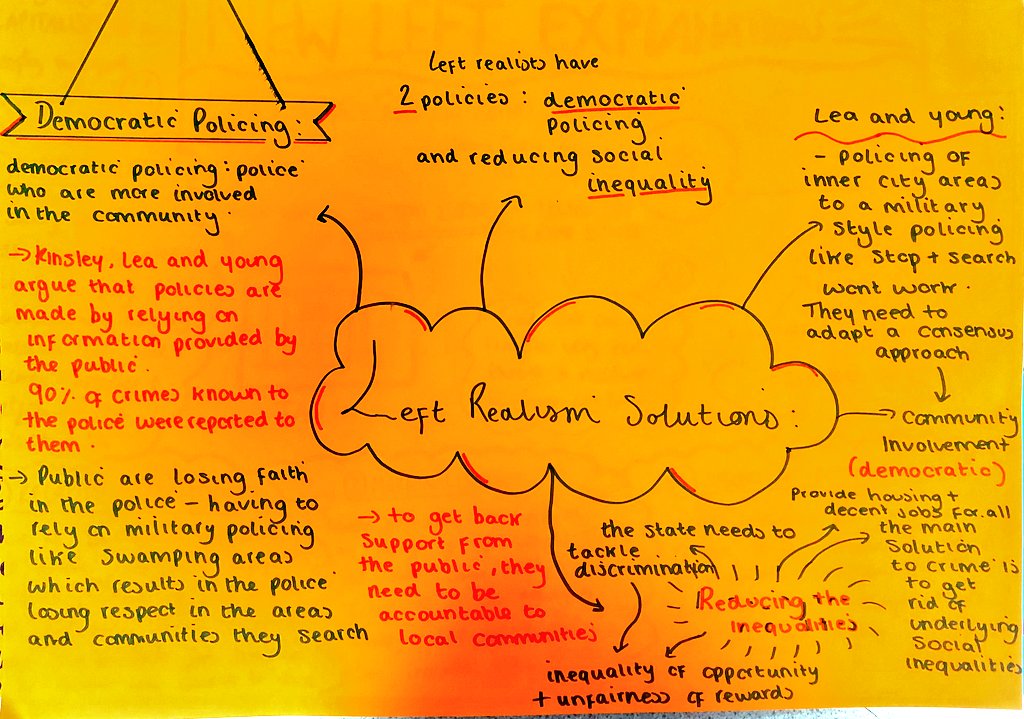 Democratic Policing:
democratic policing: police
who are more involved
in the community.
→ Kinsley, Lea and young
argue that policies are
made by relying on
information provided by
the public.
90% of crimes known to
the police were reported to
them.
→ Public are losing faith
in the police - having to
rely on military policing
like swamping areas
which results in the police
losing respect in the areas
and communities they search
Left realists have
2 policies: democratic
policing
and reducing social
inequality
Lea and young:
- policing of
inner city areas
to a military
style policing
like stop + search
wont work.
They need to
adapt a consensus
approach
Community
Involvement
(democratic)
Left Realism Solutions:
→ to get back
support from
the public, they
need to be
accountable to
local communities
the state needs to
tackle
discrimination
Provide housing +
decent jobs for all
the main
solution
to crime is
to get
rid of
underlying
social
inequalities
Reducing the
inequalities
inequality of opportunity
+ unfairness of rewards